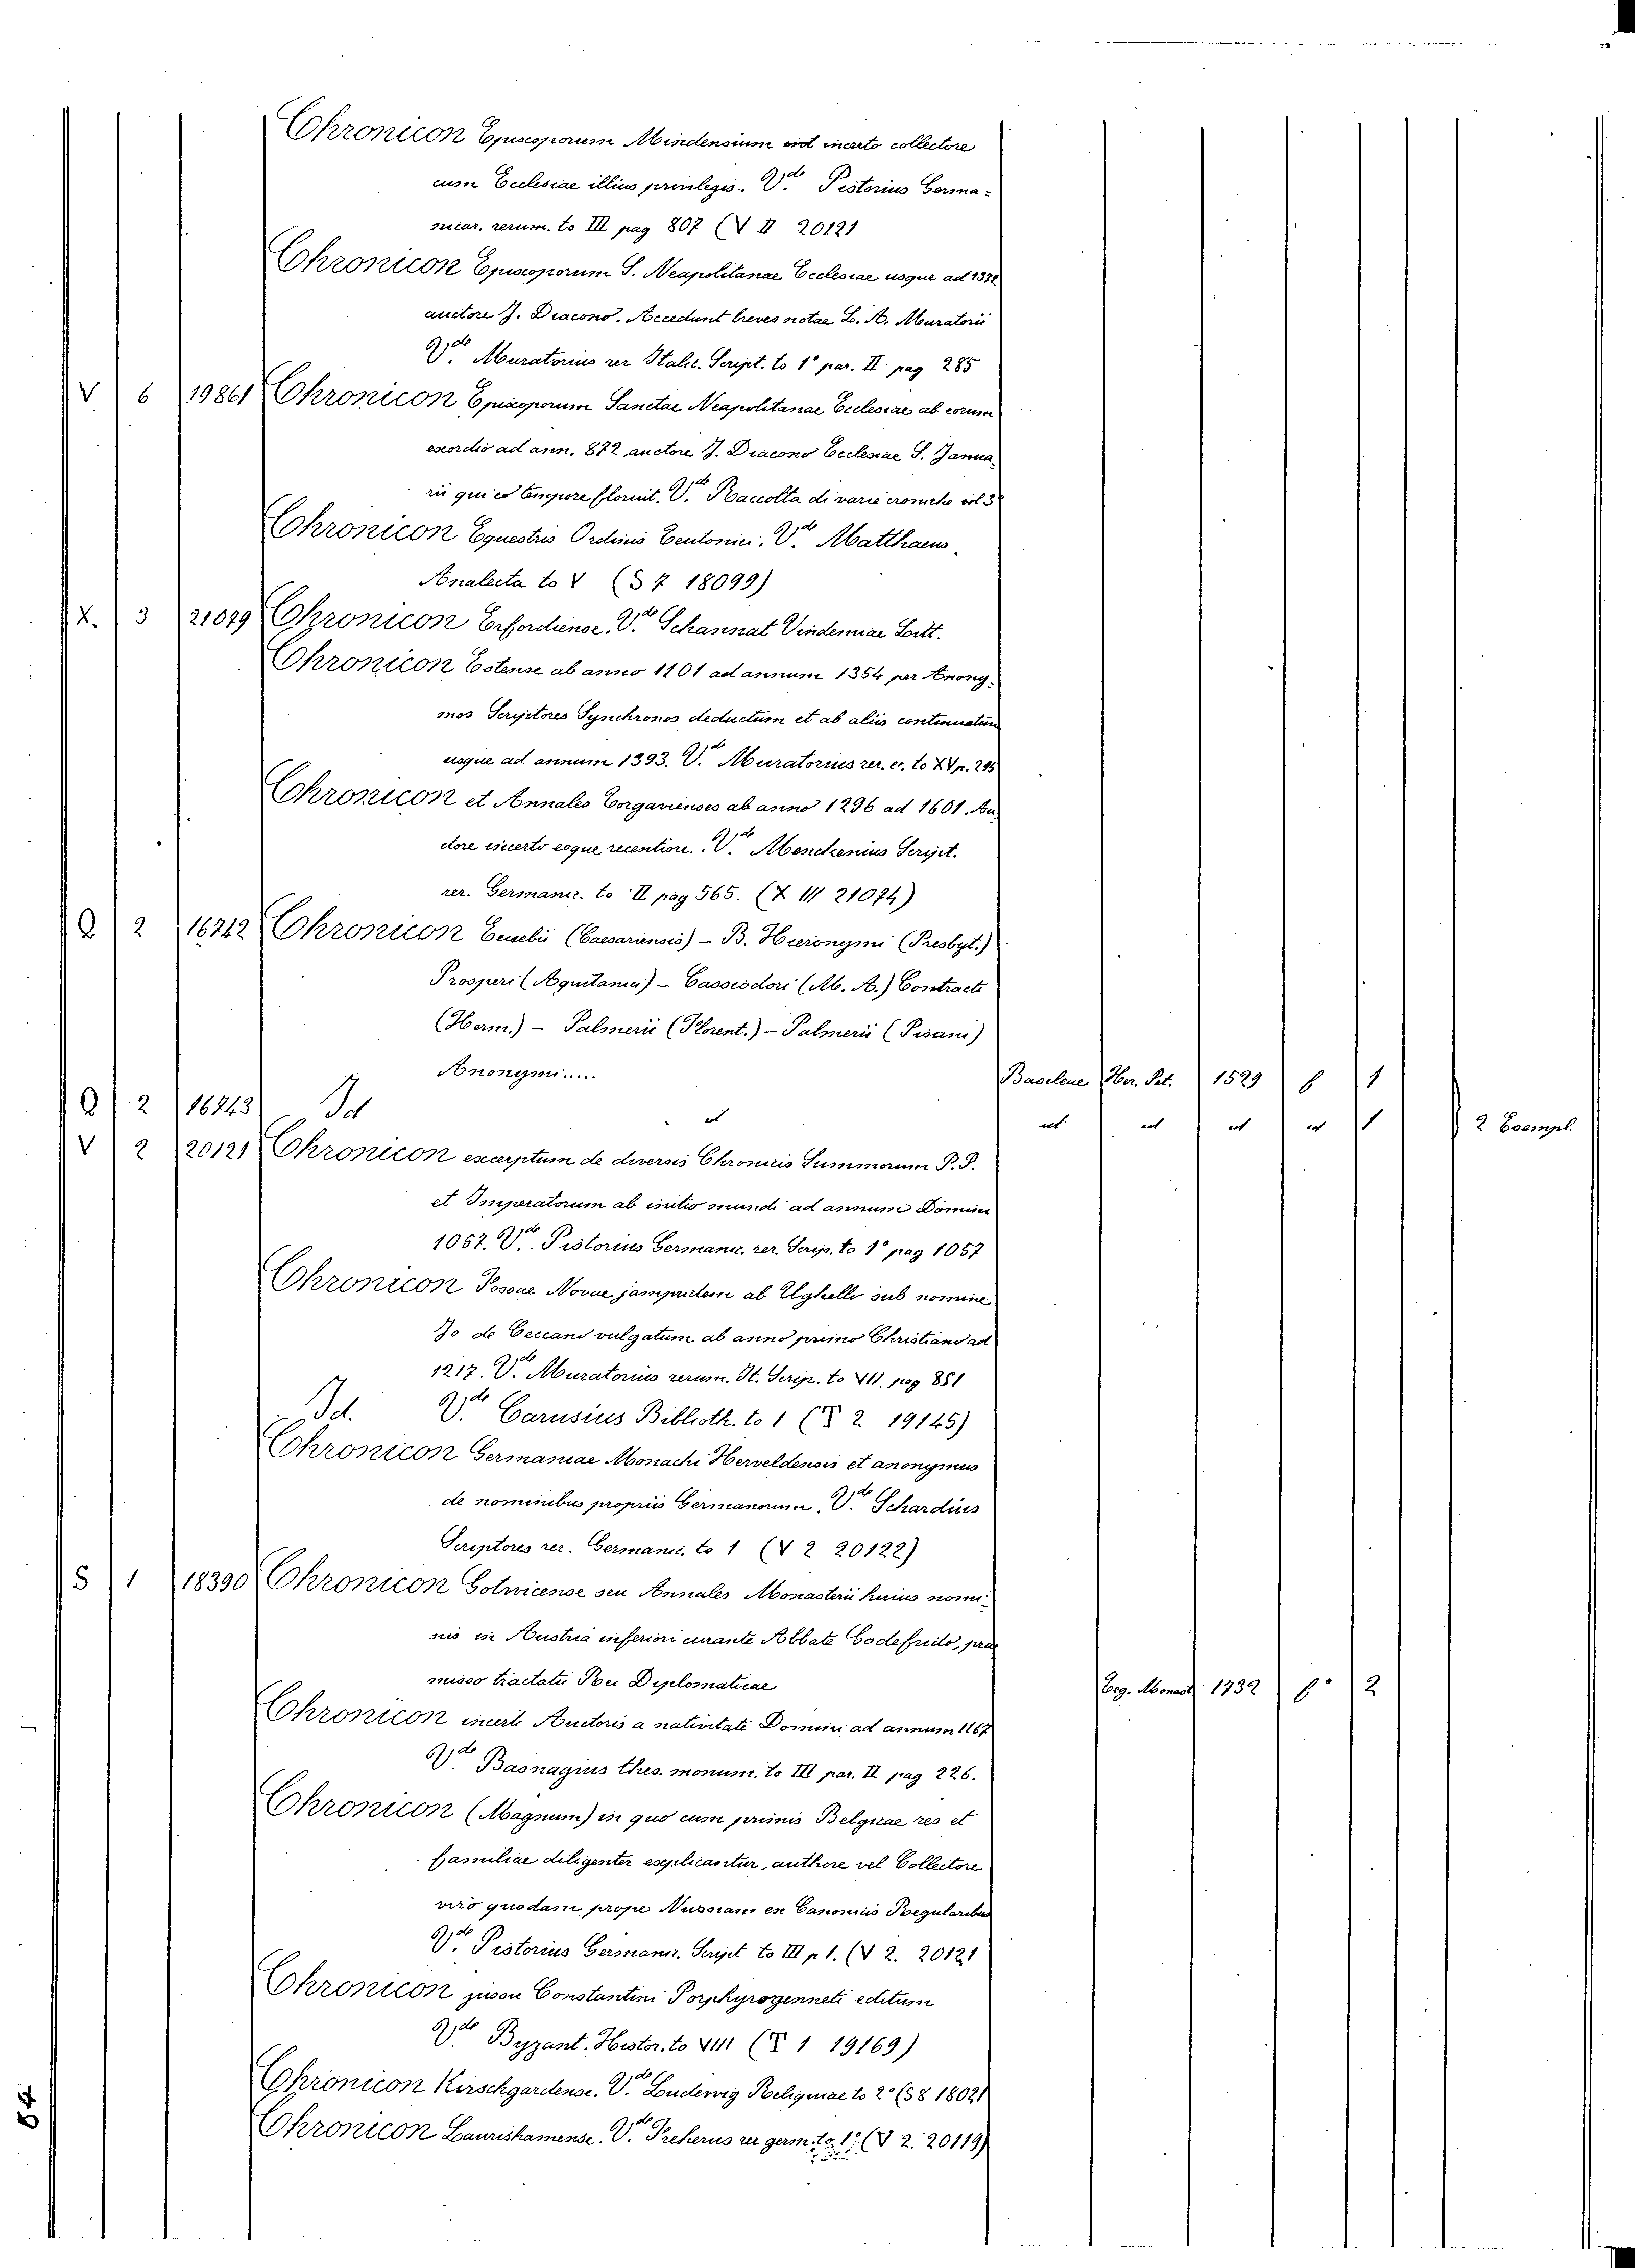 Chronicon Episcoporum Mindensium incerto collectore
cum Ecclesiae illius privilegis. V.de Pistorius Germa-
nicar. rerum. to III pag 807 (V II 20121
Chronicon Episcoporum S. Neapolitanae Ecclesiae usque ad 1372
auctore J. Diacono. Accedunt breves notae L. A. Muratorii
V.de Muratorius rer Italic. Script. to 1° par. II pag 285
V 6 19861 Chronicon Episcoporum Sanctae Neapolitanae Ecclesiae ab eorum
exordio ad ann. 872 auctore J. Diacono Ecclesiae S. Janua-
rii qui eo tempore floruit. V.de Raccolta di varie croniche vol 3
Chronicon Equestris Ordinis Teutonici. V.de Matthaeus
Analecta to V (S 7 18099)
X. 3 21079 Chronicon Erfordiense. V.de Schannat Vindemiae Litt.
Chronicon Estense ab anno 1101 ad annum 1354 per Anony-
mos Scriptores Synchronos deductum et ab aliis continuatum
usque ad annum 1393. V.de Muratorius rer. ec. to XV p. 295
Chronicon et Annales Torgavienses ab anno 1296 ad 1601. Au-
ctore incerto eoque recentiore. V.de Menckenius Script.
rer. Germanic. to II pag 565. (X III 21074)
Q 2 16742 Chronicon Eusebii (Caesariensis) – B. Hieronymi (Presbyt.)
Prosperi (Aquitanici) – Cassiodori (M. A.) Contracti
(Herm.) – Palmerii (Florent.) – Palmerii (Pisani)
Anonymi..... Basileae Her. Pet. 1529 f 1
Q 2 16743 Id id id id id id 1 2 Esempl.
V 2 20121 Chronicon excerptum de diversis Chronicis Summorum P. P.
et Imperatorum ab initio mundi ad annum Domini
1067. V.de Pistorius Germanic. rer. Scrip. to 1° pag 1057
Chronicon Fossae Novae jampridem ab Ughello sub nomine
Jo de Ceccano vulgatum ab anno primo Christiano ad
1217. V.de Muratorius rerum. It. Scrip. to VII. pag 851
Id. V.de Carusius Biblioth. to 1 (T 2 19145)
Chronicon Germaniae Monachi Herveldensis et anonymus
de nominibus propriis Germanorum. V.de Schardius
Scriptores rer. Germanic. to 1 (V 2 20122)
S 1 18390 Chronicon Gotwicense seu Annales Monasterii huius nomi-
nis in Austria inferiori curante Abbate Godefrido, prae
misso tractatu Rei Diplomaticae Teg. Monast 1732 f° 2
Chronicon incerti Auctoris a nativitate Domini ad annum 1167
V.de Basnagius thes. monum. to III par. II pag 226.
Chronicon (Magnum) in quo cum primis Belgicae res et
familiae diligenter explicantur, authore vel Collectore
viro quodam prope Nussiam ex Canonicis Regularibus
V.de Pistorius Germanic. Script to III p 1. (V 2. 20121
Chronicon jussu Constantini Porphyrogenneti editum
V.de Byzant. Histor. to VIII (T 1 19169)
Chronicon Kirschgardense. V.de Ludewig Reliquiae to 2° (S 8 18021
Chronicon Laurishamense. V.de Freherus rer germ. to 1° (V 2. 20119)
84